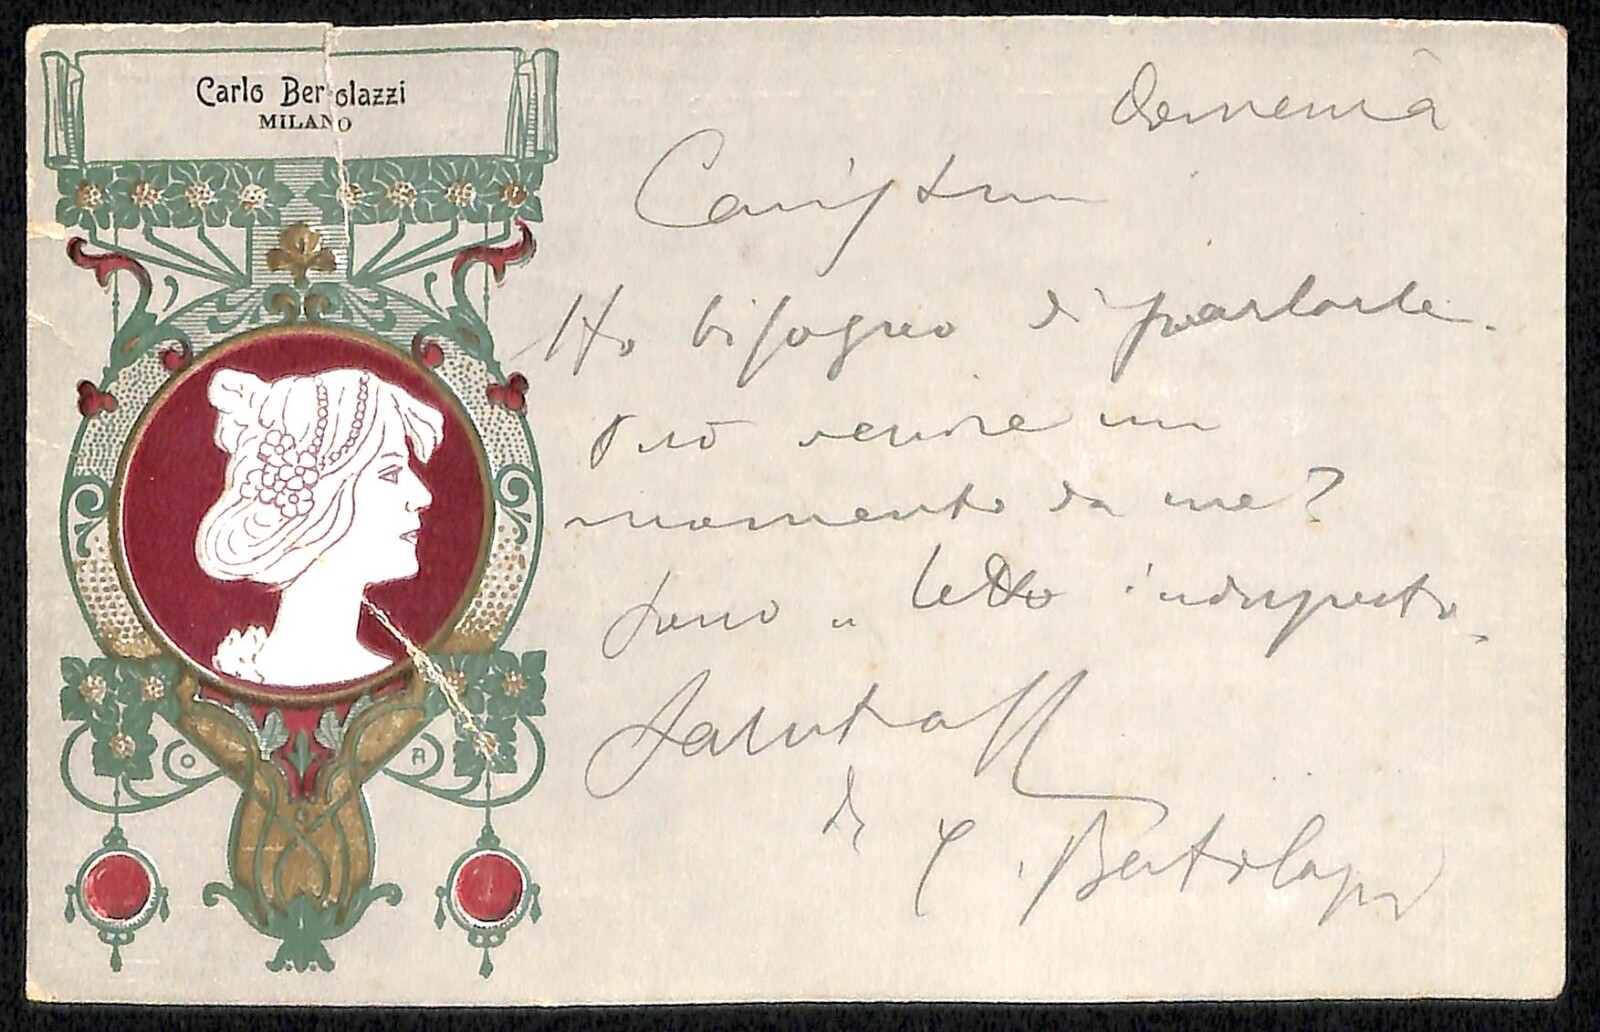 Carlo Bertolazzi
MILANO
Domenica
Ho bisogno di parlarle.
Può venire un
momento da me?
Sono a letto indisposto.
Saluta
di
C. Bertolazzi